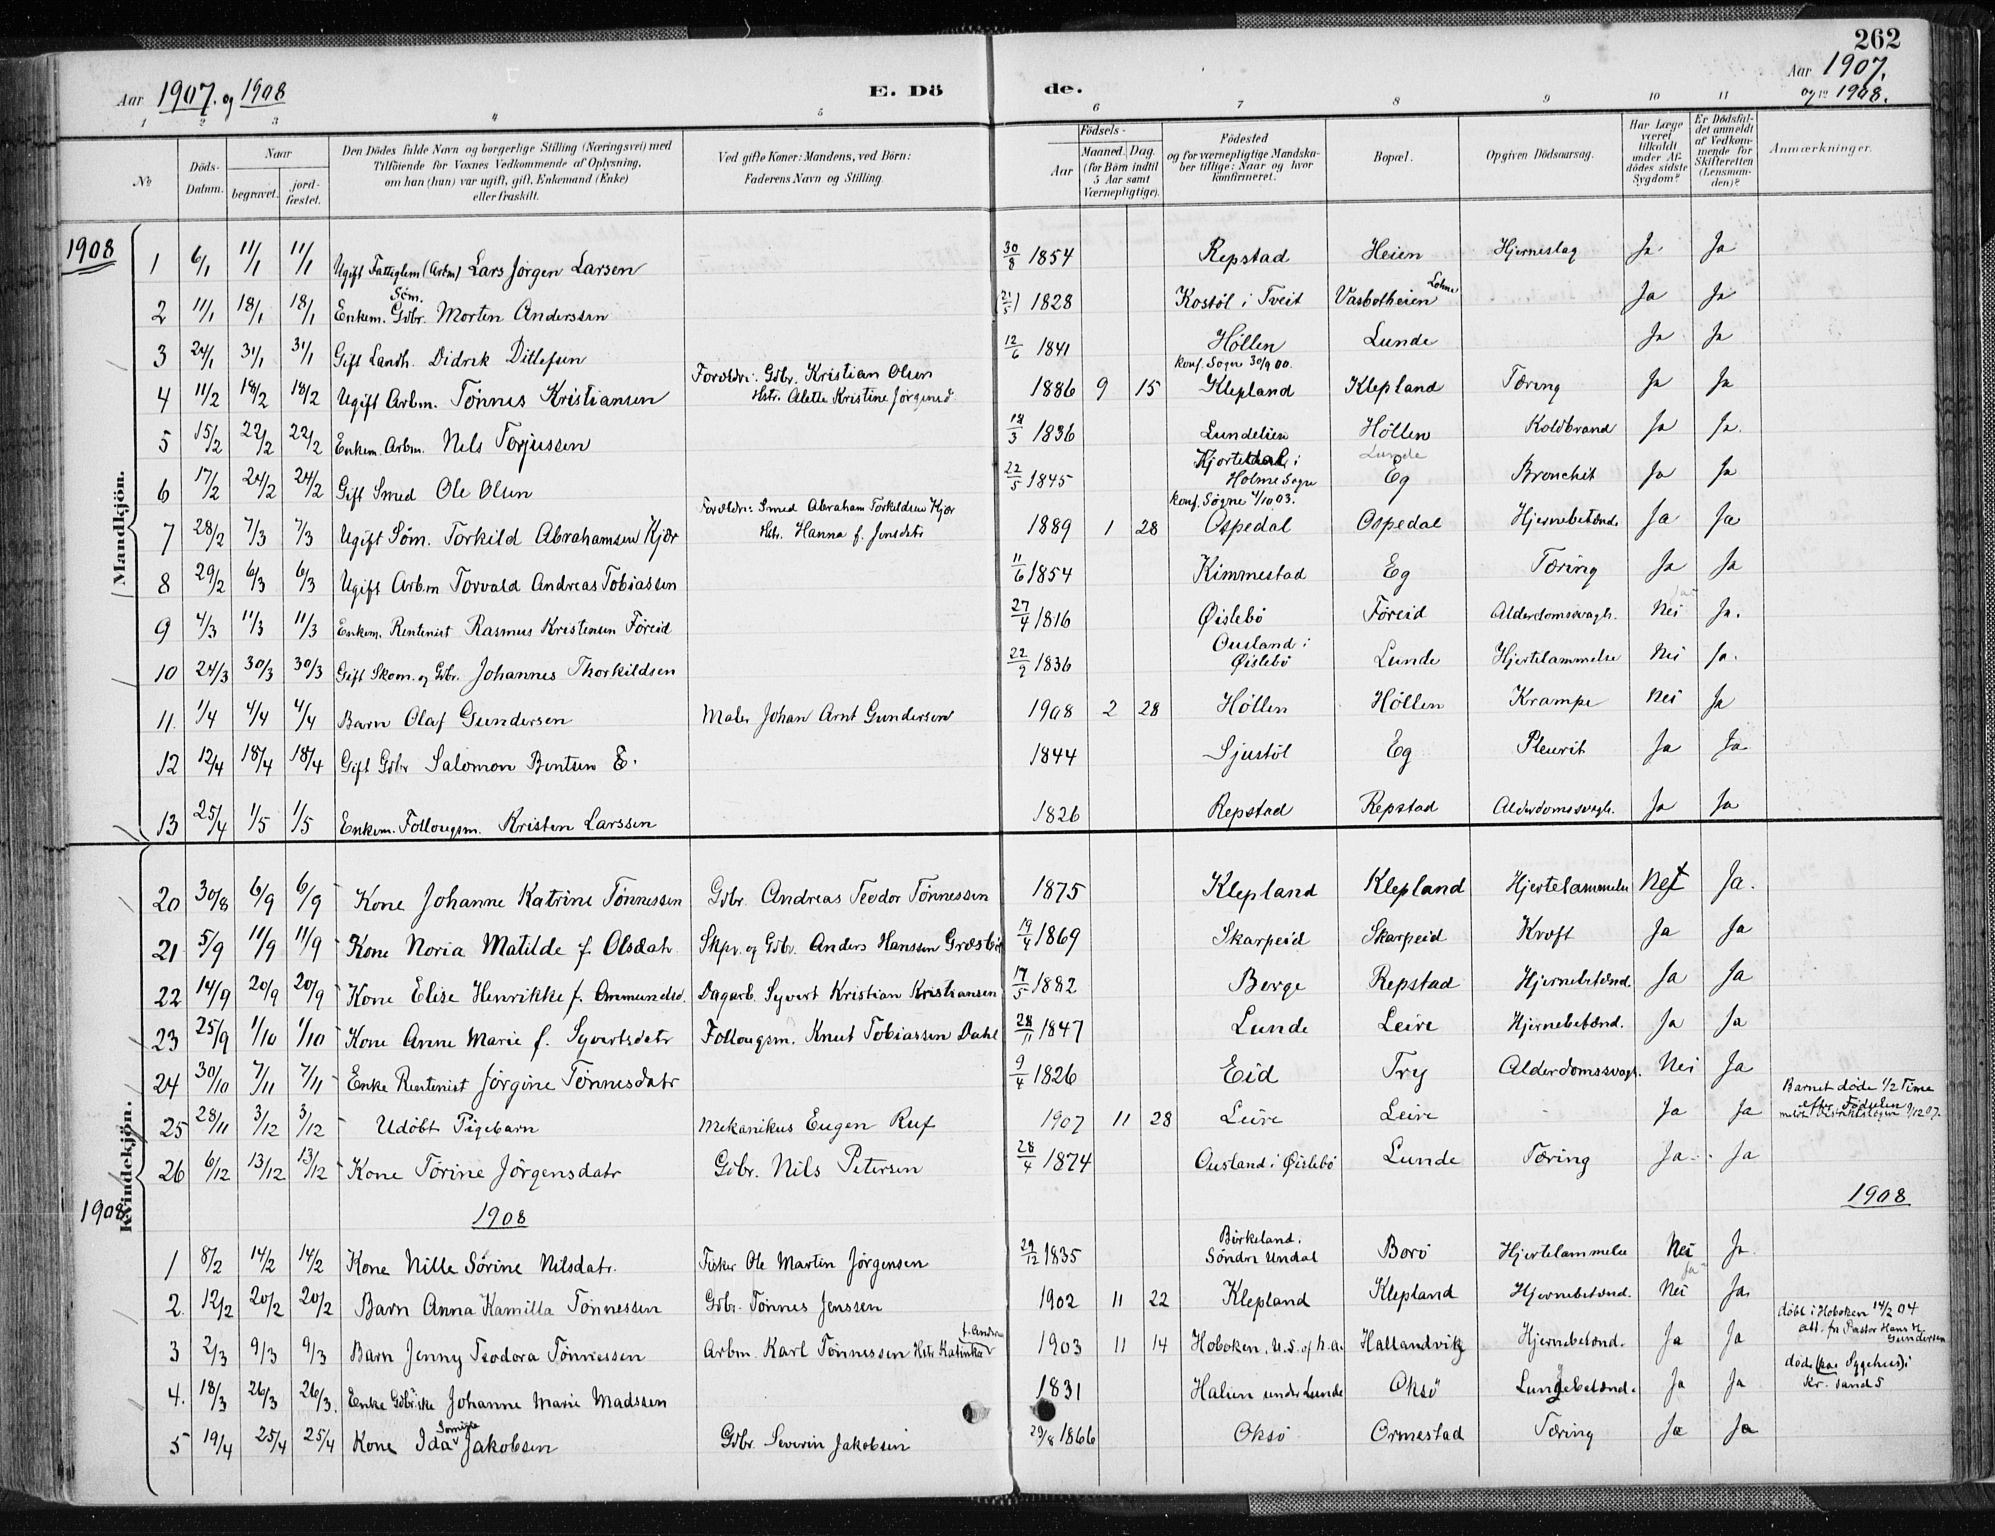 262
Aar 1907. og 1908
E. Döde.
Aar 1907.
og 1908.
1 2 3 4 5 6 7 8 9 10 11 12
No
Döds-Datum.
Naar
begravet.
jordfæstet.
Den Dödes fulde Navn og borgerlige Stilling (Næringsvei) med
Tilföiende for Voxnes Vedkommende af Oplysning,
om han (hun) var ugift, gift, Enkemand (Enke)
eller fraskilt.
Ved gifte Koner: Mandens, ved Börn:
Faderens Navn og Stilling.
Födsels-
Aar
Maaned. Dag.
(for Börn indtil
5 Aar samt
Værnepligtige).
Födested
og for værnepligtige Mandskaber tillige: Naar og hvor
konfirmeret.
Bopæl.
Opgiven Dödsaarsag.
Har Læge
været
tilkaldt
under Afdödes sidste
Sygdom?
Er Dödsfaldet anmeldt
af Vedkommende for
Skifteretten
(Lensmanden)?
Anmærkninger.
1908
Mandkjön.
1 6/1 11/1 11/1 Ugift Fattiglem (Arbm) Lars Jørgen Larsen 30/8 1854 Repstad Heien Hjerneslag Ja Ja
2 11/1 18/1 18/1 Enkem. Søm. Gbr. Morten Anderssen 21/5 1828 Kostøl i Tveit Vasbotheien Lohne Ja Ja
3 24/1 31/1 31/1 Gift Landh. Didrik Ditlefsen 12/6 1841 Høllen Lunde Ja Ja
4 11/2 18/2 18/2 Ugift Arbm. Tønnes Kristiansen Forældr: Gbr. Kristian Olsen Hstr. Alette Kristine Jørgensd. 1886 9 15 konf. Søgne 30/9 00. Klepland Klepland Tæring Ja Ja
5 15/2 22/2 22/2 Enkem. Arbm. Nils Torjussen 18/3 1836 Lundelien Høllen Lunde Koldbrand Ja Ja.
6 17/2 24/2 24/2 Gift Smed Ole Olsen 22/5 1845 Holme Sogn Eg Bronchit Ja Ja
7 28/2 7/3 7/3 Ugift Søm. Torkild Abrahamsen Kjær Forældr: Smed Abraham Torkildsen Kjær Hstr. Hanna f. Jensdatr 1889 1 28 konf. Søgne 4/10 03. Ospedal Ospedal Hjernebetænd. Ja Ja
8 29/2 6/3 6/3 Ugift Arbm Torvald Andreas Tobiassen 11/6 1854 Kimmestad Eg Tæring Ja Ja
9 4/3 11/3 11/3 Enkem. Rentenist Rasmus Kristensen Føreid 27/4 1816 Øislebø Føreid Alderdomssvagh. Nei Ja.
10 24/3 30/3 30/3 Gift Skom. og Gbr. Johannes Thorkildsen 22/9 1836 Ousland i Øislebø Lunde Hjertelammelse Nei Ja.
11. 1/4 4/4 4/4 Barn Olaf Gundersen Maler Johan Arnt Gundersen 1908 2 28 Høllen Høllen Krampe Nei Ja
12 12/4 18/4 18/4 Gift Gbr Salomon Bentsen E. 1844 Sjustøl Eg Pleurit Ja Ja
13 25/4 1/5 1/5 Enkem. Follougsm. Kristen Larssen 1826 Repstad Repstad Alderdomssvagh. Ja Ja
Kvindekjön.
20 30/8 6/9 6/9 Kone Johanne Katrine Tønnessen Gbr. Andreas Teodor Tønnessen 1875 Klepland Klepland Hjertelammelse Nei Ja.
21 5/9 11/9 11/9 Kone Noria Matilde f. Olsdatr. Skpr. og Gbr. Anders Hanssen 19/4 1869 Skarpeid Skarpeid Kræft Ja Ja
22 14/9 20/9 20/9 Kone Elise Henrikke f. Ommundsd. Dagarb. Syvert Kristian Kristiansen 17/5 1882 Berge Repstad Hjernebetænd. Ja Ja
23 25/9 1/10 1/10 Kone Anne Marie f. Syvertsdatr Follougsm. Knut Tobiassen Dahl 28/11 1847 Lunde Leire Hjernebetænd. Ja Ja
24 30/10 7/11 7/11 Enke Rentenist Jørgine Tønnesdatr 9/4 1826 Eid Try Alderdomssvagh. Nei Ja
25 28/11 3/12 3/12 Udøbt Pigebarn Mekanikus Eugen Ruf 1907 11 28 Leire Leire - Ja Ja Barnet døde 1/2 Time efter Fødselen
26 6/12 13/12 13/12 Kone Tørine Jörgensdatr Gbr. Nils Petersen 28/4 1874 Ousland i Øislebø Lunde Tæring Ja Ja
1908 1908 1908
1 8/2 14/2 14/2 Kone Nille Sörine Nilsdatr. Fisker Ole Martin Jörgensen 29/12 1835 Birkeland, Søndre Undal Borö Hjertelammelse Nei Ja
2. 12/2 20/2 20/2 Barn Anna Kamilla Tønnessen Gbr. Tønnes Jenssen 1902 11 22 Klepland Klepland Hjernebetænd. Nei Ja Ja.
3 2/3 9/3 9/3 Barn Jenny Teodora Tønnessen Arbm. Karl Tønnessen Hstr Katinka 1903 11 14 Hoboken, U.S. of N.A. Hallandvik Hjernebetænd. Ja Ja døbt i Hoboken 14/2 04 att. fra Pastor Hans H Gundersen
4. 18/3 26/3 26/3. Enke Johanne Marie Madssen 1831 Halien under Lunde Oksö Lungebetænd. Ja Ja døde (paa Sygehus) i Kr. sand S
5 19/4 25/4 25/4 Kone Ida Jakobsen Gbr. Severin Jakobsen 29/8 1866 Oksö Ormestad Tæring Ja Ja